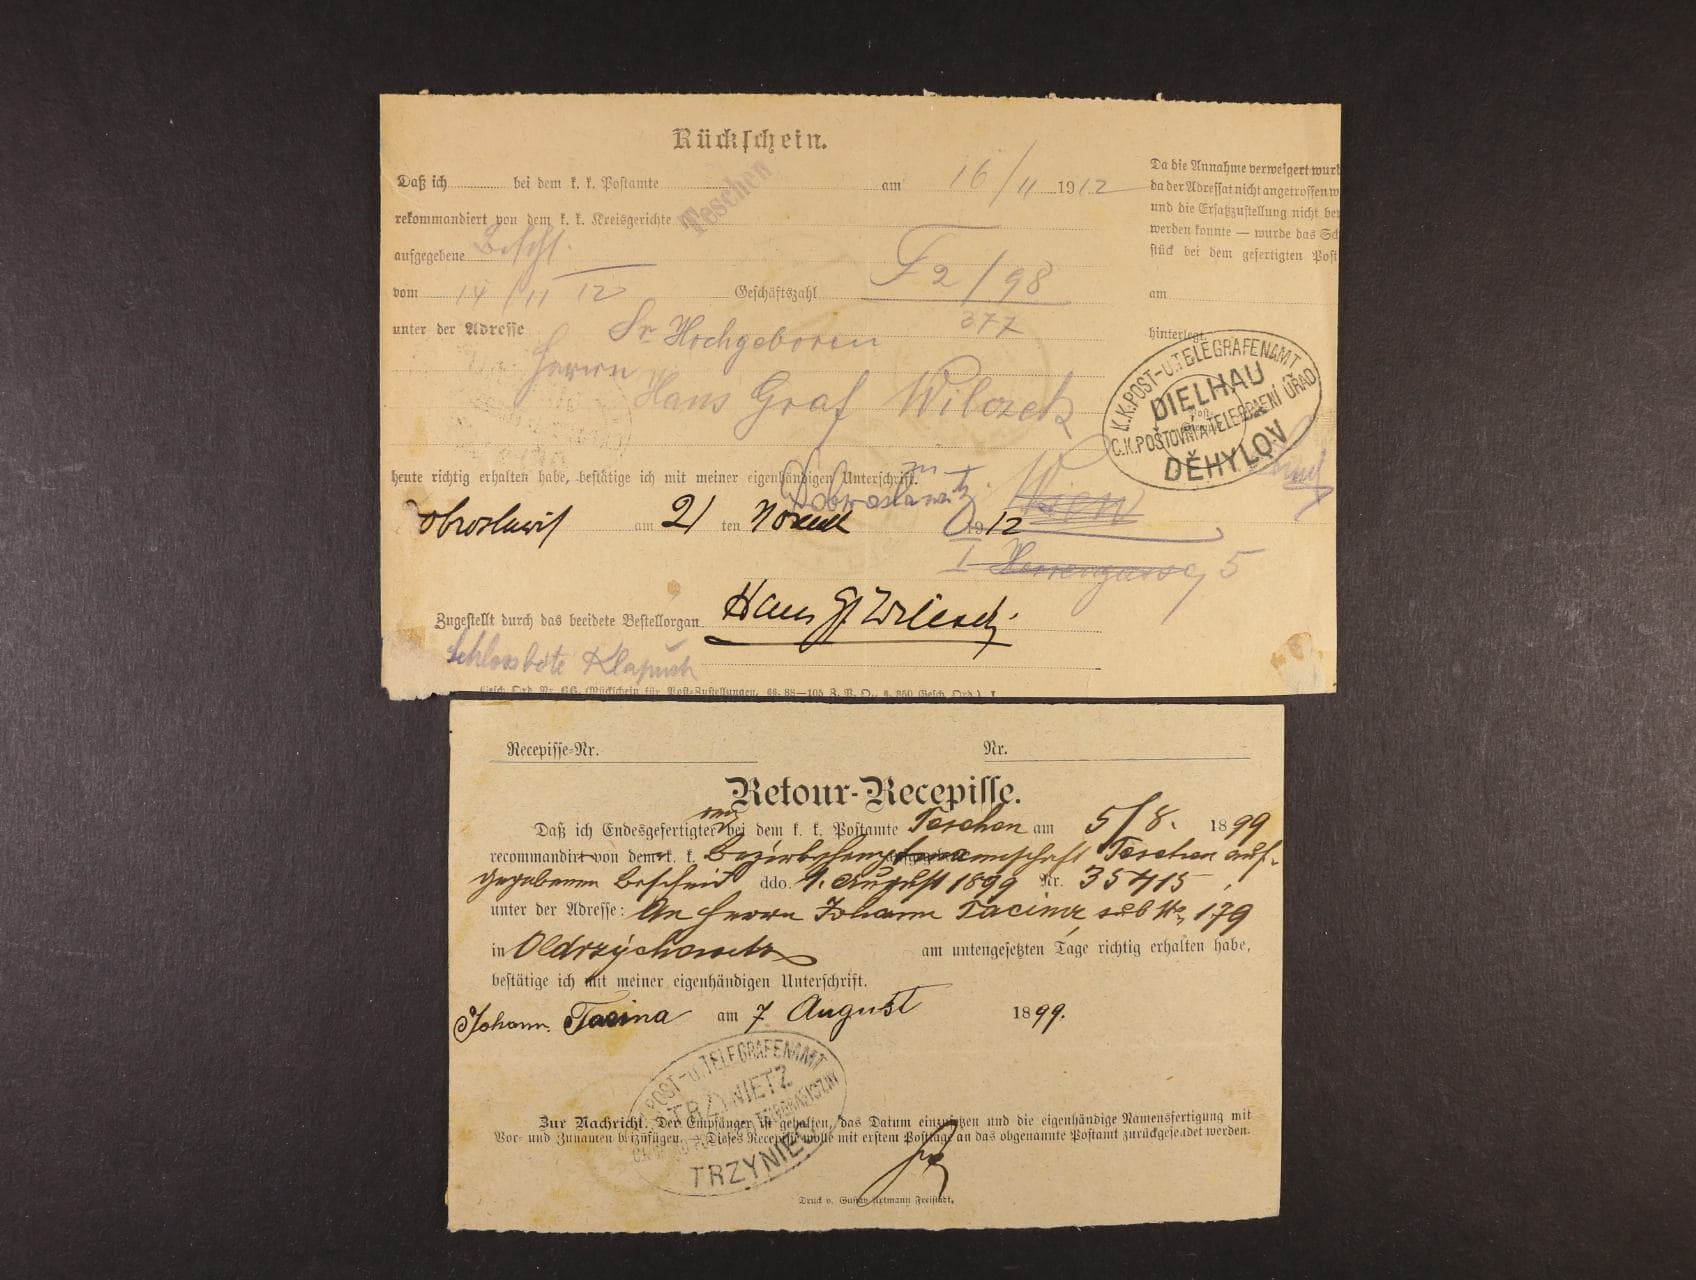 Rückschein.
Daß ich bei dem k. k. Postamte Teschen am 16/11 1912
rekommandiert von dem k. k. Kreisgerichte
aufgegebene
vom 14/11 12 Geschäftszahl F 2/98
377
unter der Adresse Sr. Hochgeboren
Herrn
Hans Graf Wilczek
zu
Dobroslawitz
Wien
I Herrengasse 5
heute richtig erhalten habe, bestätige ich mit meiner eigenhändigen Unterschrift.
am 21 ten 1912
Hans Gf Wilczek
Zugestellt durch das beeidete Bestellorgan
Schlossbote Klapuch
Gesch. Ord. Nr. 66. (Rückschein für Post-Zustellungen, §§. 88—105 Z. P. O., §. 350 Gesch. Ord.) I
Da die Annahme verweigert wurd
da der Adressat nicht angetroffen w
und die Ersatzzustellung nicht be
werden konnte — wurde das Sch
stück bei dem gefertigten Post
am
hinterlegt.
K.K. POST-U. TELEGRAFENAMT
DIELHAU
C.K. POŠTOVNÍ A TELEGRAFNÍ ÚŘAD
DĚHYLOV
Recepisse-Nr. Nr.
Retour-Recepisse.
Daß ich Endesgefertigter bei dem k. k. Postamte Teschen am 5/8. 1899
recommandirt von dem k. k. Bezirkshauptmannschaft Teschen auf-
gegebenen Bescheid ddo. 1. August 1899 Nr. 35415
unter der Adresse: An Herrn Johann Tacina, sub No. 179
in Oldrzychowitz am untengesetzten Tage richtig erhalten habe,
bestätige ich mit meiner eigenhändigen Unterschrift.
Johann Tacina am 7 August 1899.
POST-U. TELEGRAFENAMT
TRZYNIETZ
TELEGRAFICZNY
TRZYNIEC
Zur Nachricht. Der Empfänger ist gehalten, das Datum einzusetzen und die eigenhändige Namensfertigung mit
Vor- und Zunamen beizufügen. — Dieses Recepisse wolle mit erstem Posttage an das obgenannte Postamt zurückgesendet werden.
Druck v. Gustav Axtmann Freistadt.